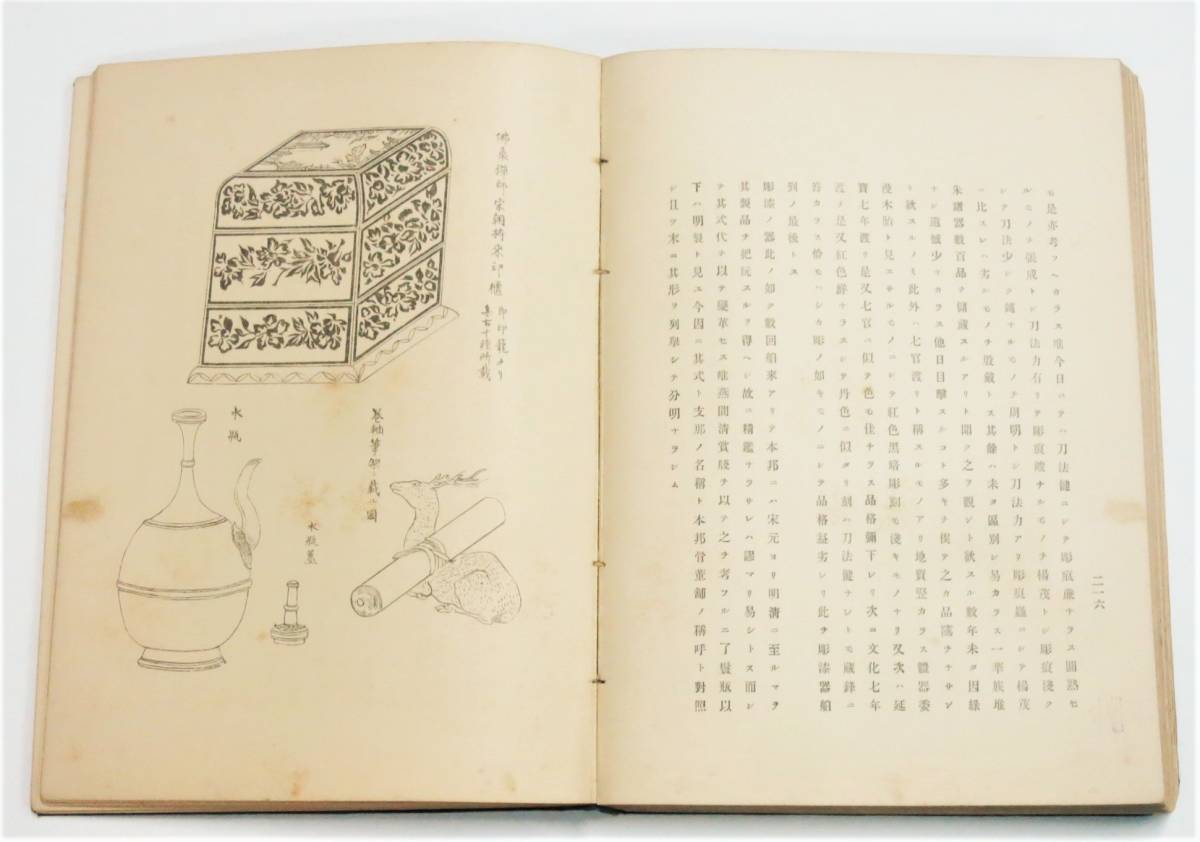 二一六
モ是亦考フヘカラス唯今日ニテハ刀法健ニシテ彫痕廉ナラス圓熟セ
ルモノヲ張成トシ刀法力有リテ彫痕峻ナルモノヲ楊茂トシ彫痕淺ク
シテ刀法少シク鈍ナルモノヲ周明トシ刀法力アリ彫痕麁ニシテ楊茂
ニ比スレハ劣シモノヲ殷徽トス其餘ハ未タ區別シ易カラス一華族堆
朱器數百品ヲ儲藏スルアリト聞ク之ヲ觀ント欲スル數年未タ因緣
ナシ遺憾少ナカラス他日目擊スルコト多キヲ俟テ之カ品隲ヲナサン
ト欲スルノミ此外ハ七官渡リト稱スルモノアリ地質堅カラス器委
漫木胎ト見エサルモノニシテ紅色黒暗彫刻モ淺キモノナリ又次ハ延
寶七年渡リ是又七官ニ似テ色モ佳ナラス品格彌下レリ次ニ文化七年
渡ノ是又紅色鮮ナラスシテ丹色ニ似タリ刻ハ刀法健ナレトモ藏鋒ニ
アラス恰モハシカ彫ノ如キモノニシテ品格甚劣レリ此ヲ彫漆器舶
列ノ最後トス
彫漆ノ器此ノ如ク數回舶來アリテ本邦ニハ宋元ヨリ明清ニ至ルマヲ
其製品ヲ把玩スルヲ得ヘシ故ニ精鑑ナラサレハ謬マリ易シトス而シ
テ其式代ヲ以テ變革セス唯燕間清賞牋ヲ以テ之ヲ考フルニ了髮瓶以
下ハ明製ト見ユ今因ニ其式ト支那ノ名稱ト本邦骨董舖ノ稱呼ト對照
シ且ツ末ニ其形ヲ列擧シテ分明ナラシム
佛禪師宋朝將來印櫃
即印籠ナリ
集古十種所載
卷軸筆架ニ載ル圖
水瓶
水瓶蓋